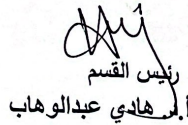 رئيس القسم
أ.د. هادي عبدالوهاب